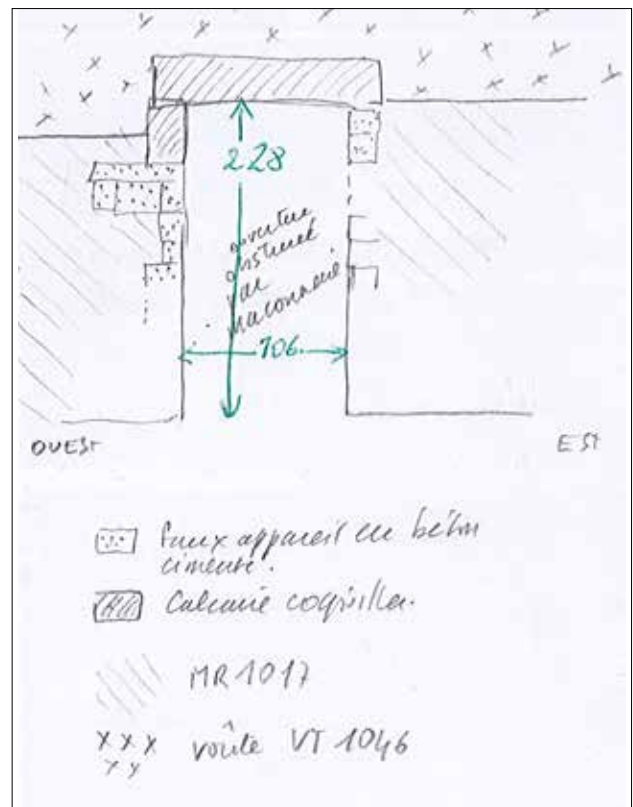 228
ouverture
obstruée
par
maçonnerie
106
OUEST
EST
faux appareil en béton
cimenté.
Calcaire coquillier.
MR 1017
voûte VT 1046